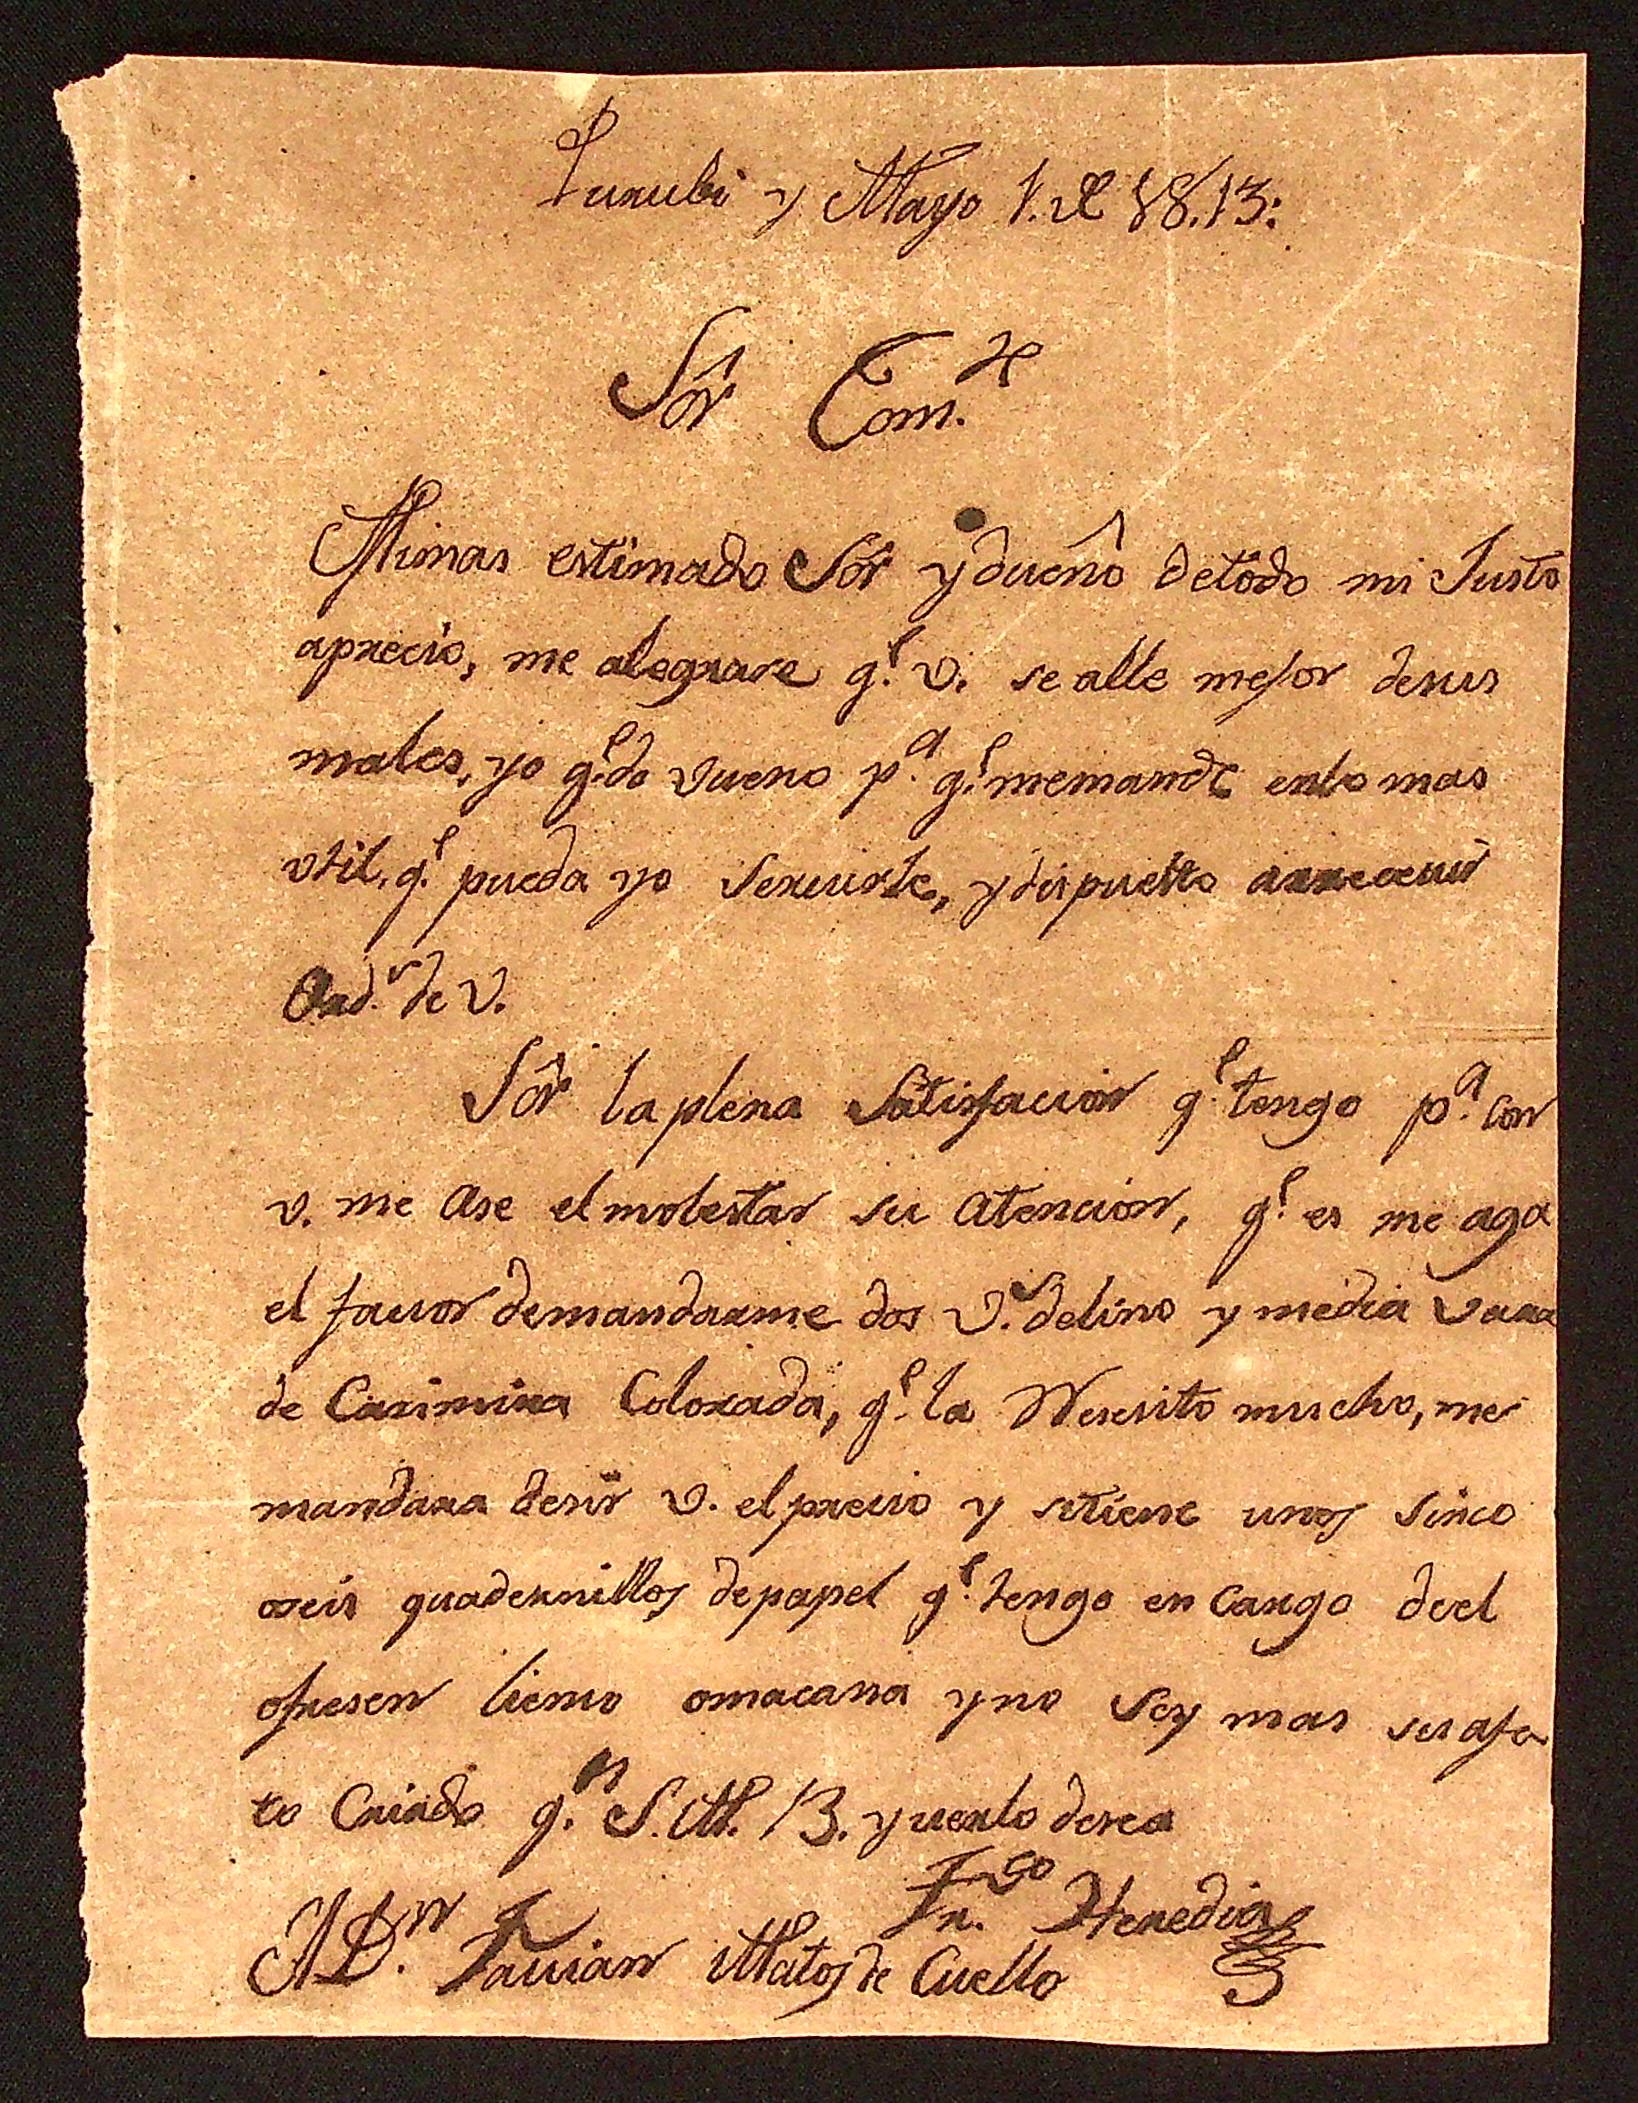 Turubi y Mayo 1. de 18.13:
Sör Com.te
Mimas estimado Sör y dueño detodo mi Justo
aprecio, me alegrare q.e v. se alle mejor desus
males, yo q.edo vueno p.a q.e memande enlo mas
vtil, q.e pueda yo servirle, y dispuesto arrecevir
Ord.s de v.
Sör la plena Satisfacion q.e tengo p.a con
v. me ase el molestar su atencion, q.e es me aga
el favor demandarme dos v.s delino y media vara
de Casimira Colorada, q.e la Nesesito mucho, me
mandara desir v. el precio y sitiene unos sinco
oseis quadernillos depapel q.e tengo en cargo deel
ofresen lienso omacana y no soy mas su afe
to Criado q.n S.M.B. y verlo desea
Fr.co Heredia
A D.n Favian Matos de Cuello